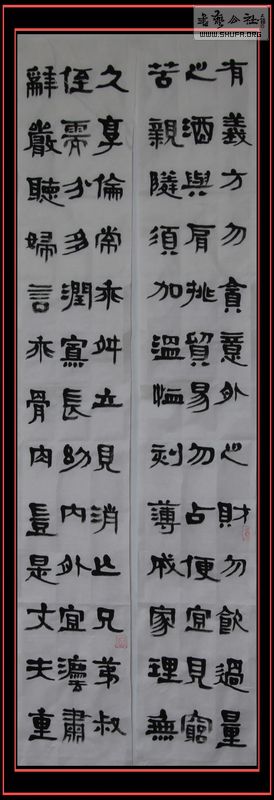 有義方勿貪意外之財勿飲過量
之酒與肩挑貿易勿占便宜見窮
苦親隣須加溫恤刻薄成家理無
久享倫常乖舛立見消亡兄弟叔
侄需分多潤寡長幼內外宜灋肅
辭嚴聽婦言乖骨肉豈是丈夫重
WWW.SHUFA.ORG